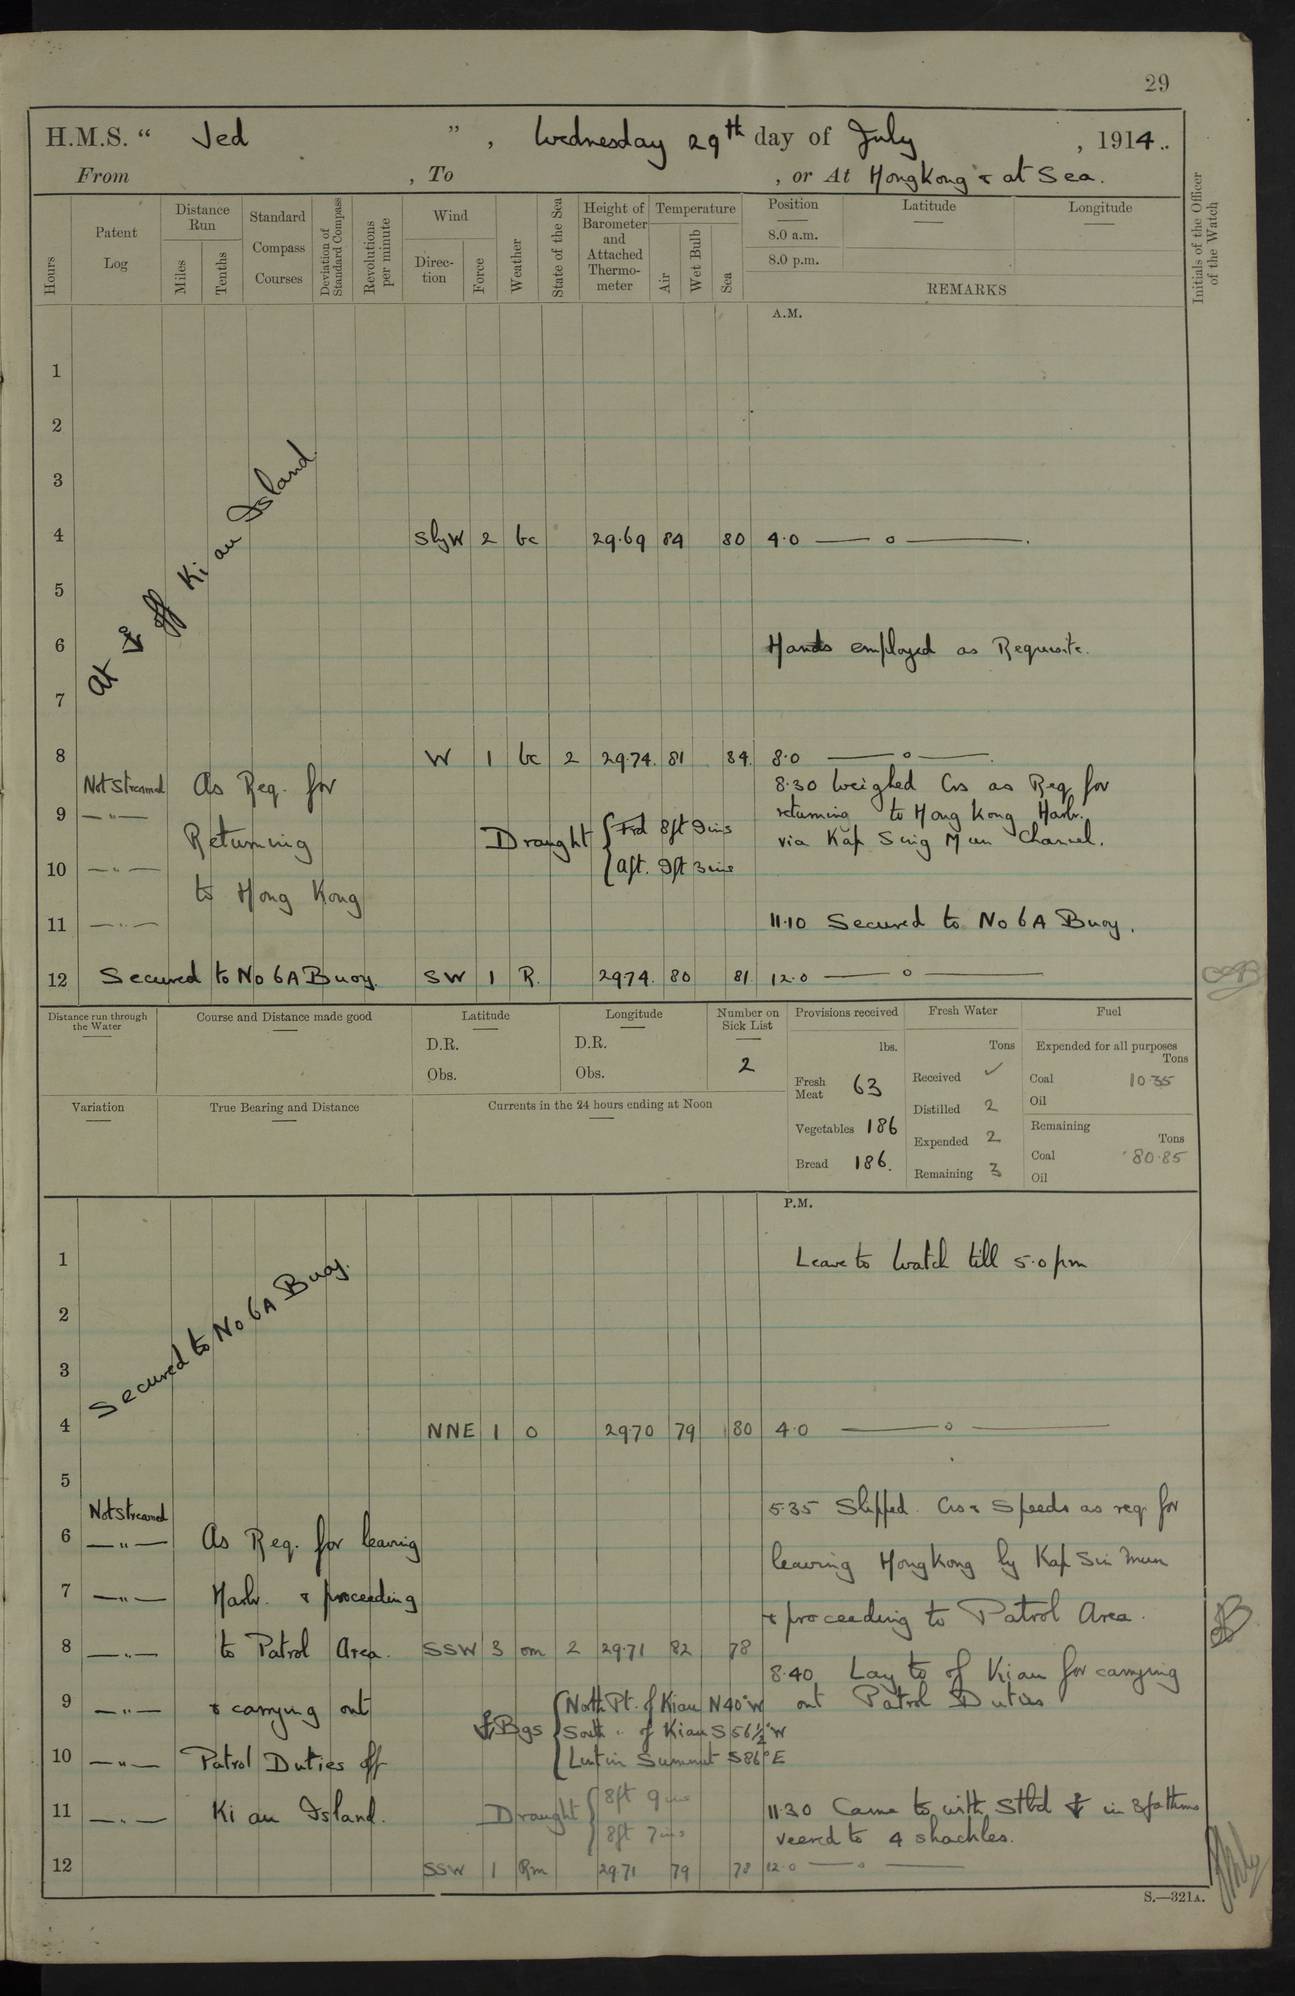 29
H.M.S. " Jed ", Wednesday 29th day of July, 1914.
From , To , or At HongKong & at Sea.
Hours
Patent Log
Distance Run
Miles
Tenths
Standard Compass Courses
Deviation of Standard Compass
Revolutions per minute
Wind
Direction
Force
Weather
State of the Sea
Height of Barometer and Attached Thermometer
Temperature
Air
Wet Bulb
Sea
Position
8.0 a.m.
8.0 p.m.
Latitude
Longitude
REMARKS
Initials of the Officer of the Watch
A.M.
1
2
3
At ⚓ off Ki au Island
4 SlyW 2 bc 29.69 84 80 4.0 — o —
5
6 Hands employed as Requisite.
7
8 W 1 bc 2 29.74. 81 84. 8.0 — o —
Not Streamed As Req. for 8.30 Weighed Cos as Req for
9 — " — Returning returning to Hong Kong Harbr.
Draught { Frd 8ft 9ins via Kap Sing Mun Channel.
10 — " — to Hong Kong Aft. 9ft 3ins
11 — " — 11.10 Secured to No 6A Buoy.
12 Secured to No 6A Buoy. SW 1 R. 29.74. 80 81 12.0 — o —
Distance run through the Water
Course and Distance made good
Latitude
D.R.
Obs.
Longitude
D.R.
Obs.
Number on Sick List
2
Variation
True Bearing and Distance
Currents in the 24 hours ending at Noon
Provisions received
lbs.
Fresh Meat 63
Vegetables 186
Bread 186.
Fresh Water
Tons
Received ✓
Distilled 2
Expended 2
Remaining 3
Fuel
Expended for all purposes
Tons
Coal 10.35
Oil
Remaining
Tons
Coal 80.85
Oil
P.M.
1 Leave to Watch till 5.0 pm
2
Secured to No 6A Buoy.
3
4 NNE 1 o 29.70 79 80 4.0 — o —
5
Not Streamed 5.35 Slipped. Cos & Speeds as req. for
6 — " — As Req. for leaving leaving HongKong by Kap Sui Mun
7 — " — Harbr. & proceeding & proceeding to Patrol Area.
8 — " — to Patrol Area. SSW 3 om 2 29.71 82 78
8.40 Lay to of Kiau for carrying
9 — " — & carrying out out Patrol Duties
⚓ Bgs { North Pt. of Kiau N40°W
South " of Kiau S56½°W
10 — " — Patrol Duties off Lintin Summit S86°E
11 — " — Ki au Island. Draught { 8ft 9ins 11.30 Came to with Stbd ⚓ in 3 fathms
8ft 7ins veered to 4 shackles.
12 SSW 1 Rm 29.71 79 78 12.0 — o —
S.—321A.